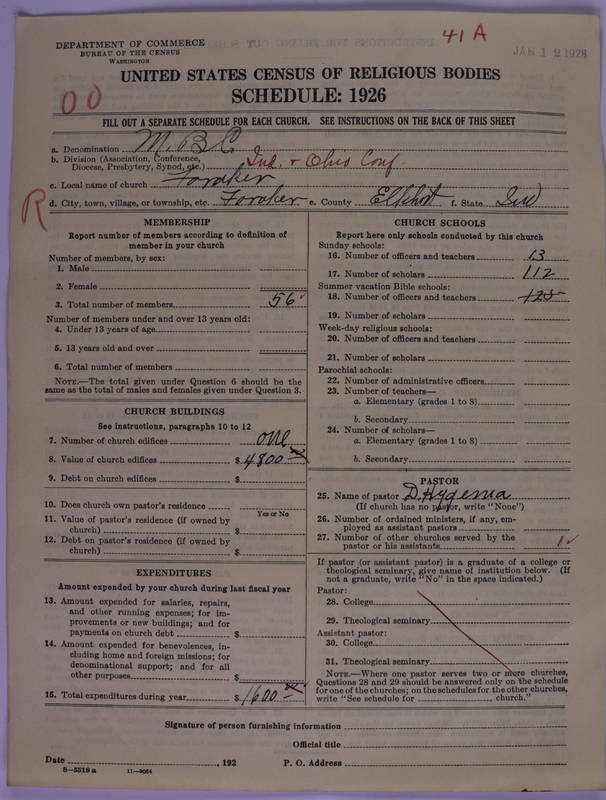 41 A
JAN 12 1928
DEPARTMENT OF COMMERCE
BUREAU OF THE CENSUS
WASHINGTON
UNITED STATES CENSUS OF RELIGIOUS BODIES
SCHEDULE: 1926
00
FILL OUT A SEPARATE SCHEDULE FOR EACH CHURCH. SEE INSTRUCTIONS ON THE BACK OF THIS SHEET
a. Denomination M. B C
b. Division (Association, Conference, Diocese, Presbytery, Synod, etc.) Ind. + Ohio Conf.
c. Local name of church Foraker
R
d. City, town, village, or township, etc. Foraker e. County Elkhart f. State Ind
MEMBERSHIP
Report number of members according to definition of
member in your church
Number of members, by sex:
1. Male
2. Female
3. Total number of members 56
Number of members under and over 13 years old:
4. Under 13 years of age
5. 13 years old and over
6. Total number of members
NOTE.—The total given under Question 6 should be the
same as the total of males and females given under Question 3.
CHURCH BUILDINGS
See instructions, paragraphs 10 to 12
7. Number of church edifices one
8. Value of church edifices $ 4800
9. Debt on church edifices $
10. Does church own pastor's residence
Yes or No
11. Value of pastor's residence (if owned by
church) $
12. Debt on pastor's residence (if owned by
church) $
EXPENDITURES
Amount expended by your church during last fiscal year
13. Amount expended for salaries, repairs,
and other running expenses; for im-
provements or new buildings; and for
payments on church debt $
14. Amount expended for benevolences, in-
cluding home and foreign missions; for
denominational support; and for all
other purposes $
15. Total expenditures during year $ 1600
CHURCH SCHOOLS
Report here only schools conducted by this church
Sunday schools:
16. Number of officers and teachers 13
17. Number of scholars 112
Summer vacation Bible schools:
18. Number of officers and teachers 125
19. Number of scholars
Week-day religious schools:
20. Number of officers and teachers
21. Number of scholars
Parochial schools:
22. Number of administrative officers
23. Number of teachers—
a. Elementary (grades 1 to 8)
b. Secondary
24. Number of scholars—
a. Elementary (grades 1 to 8)
b. Secondary
PASTOR
25. Name of pastor D. Hygema
(If church has no pastor, write "None")
26. Number of ordained ministers, if any, em-
ployed as assistant pastors
27. Number of other churches served by the
pastor or his assistants 1
If pastor (or assistant pastor) is a graduate of a college or
theological seminary, give name of institution below. (If
not a graduate, write "No" in the space indicated.)
Pastor:
28. College
29. Theological seminary
Assistant pastor:
30. College
31. Theological seminary
NOTE.—Where one pastor serves two or more churches,
Questions 28 and 29 should be answered only on the schedule
for one of the churches; on the schedules for the other churches,
write "See schedule for church."
Signature of person furnishing information
Official title
Date , 192 P. O. Address
8—5318 a 11—9054